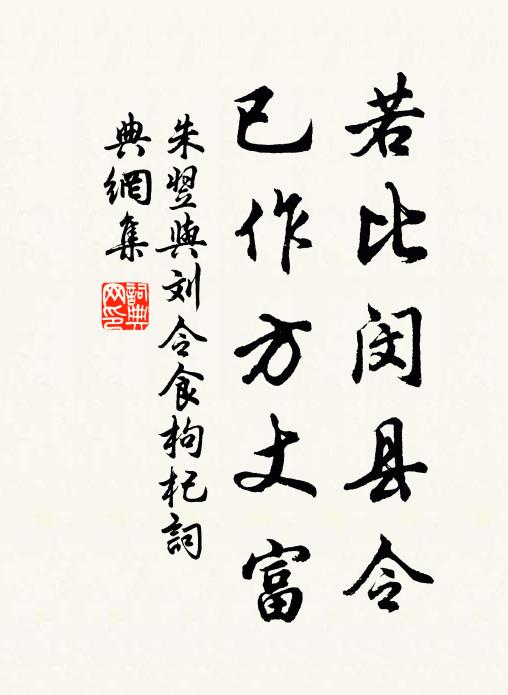 若比闵县令
已作方丈富
朱翌與刘令食枸杞詞
典網集
詞典
网印